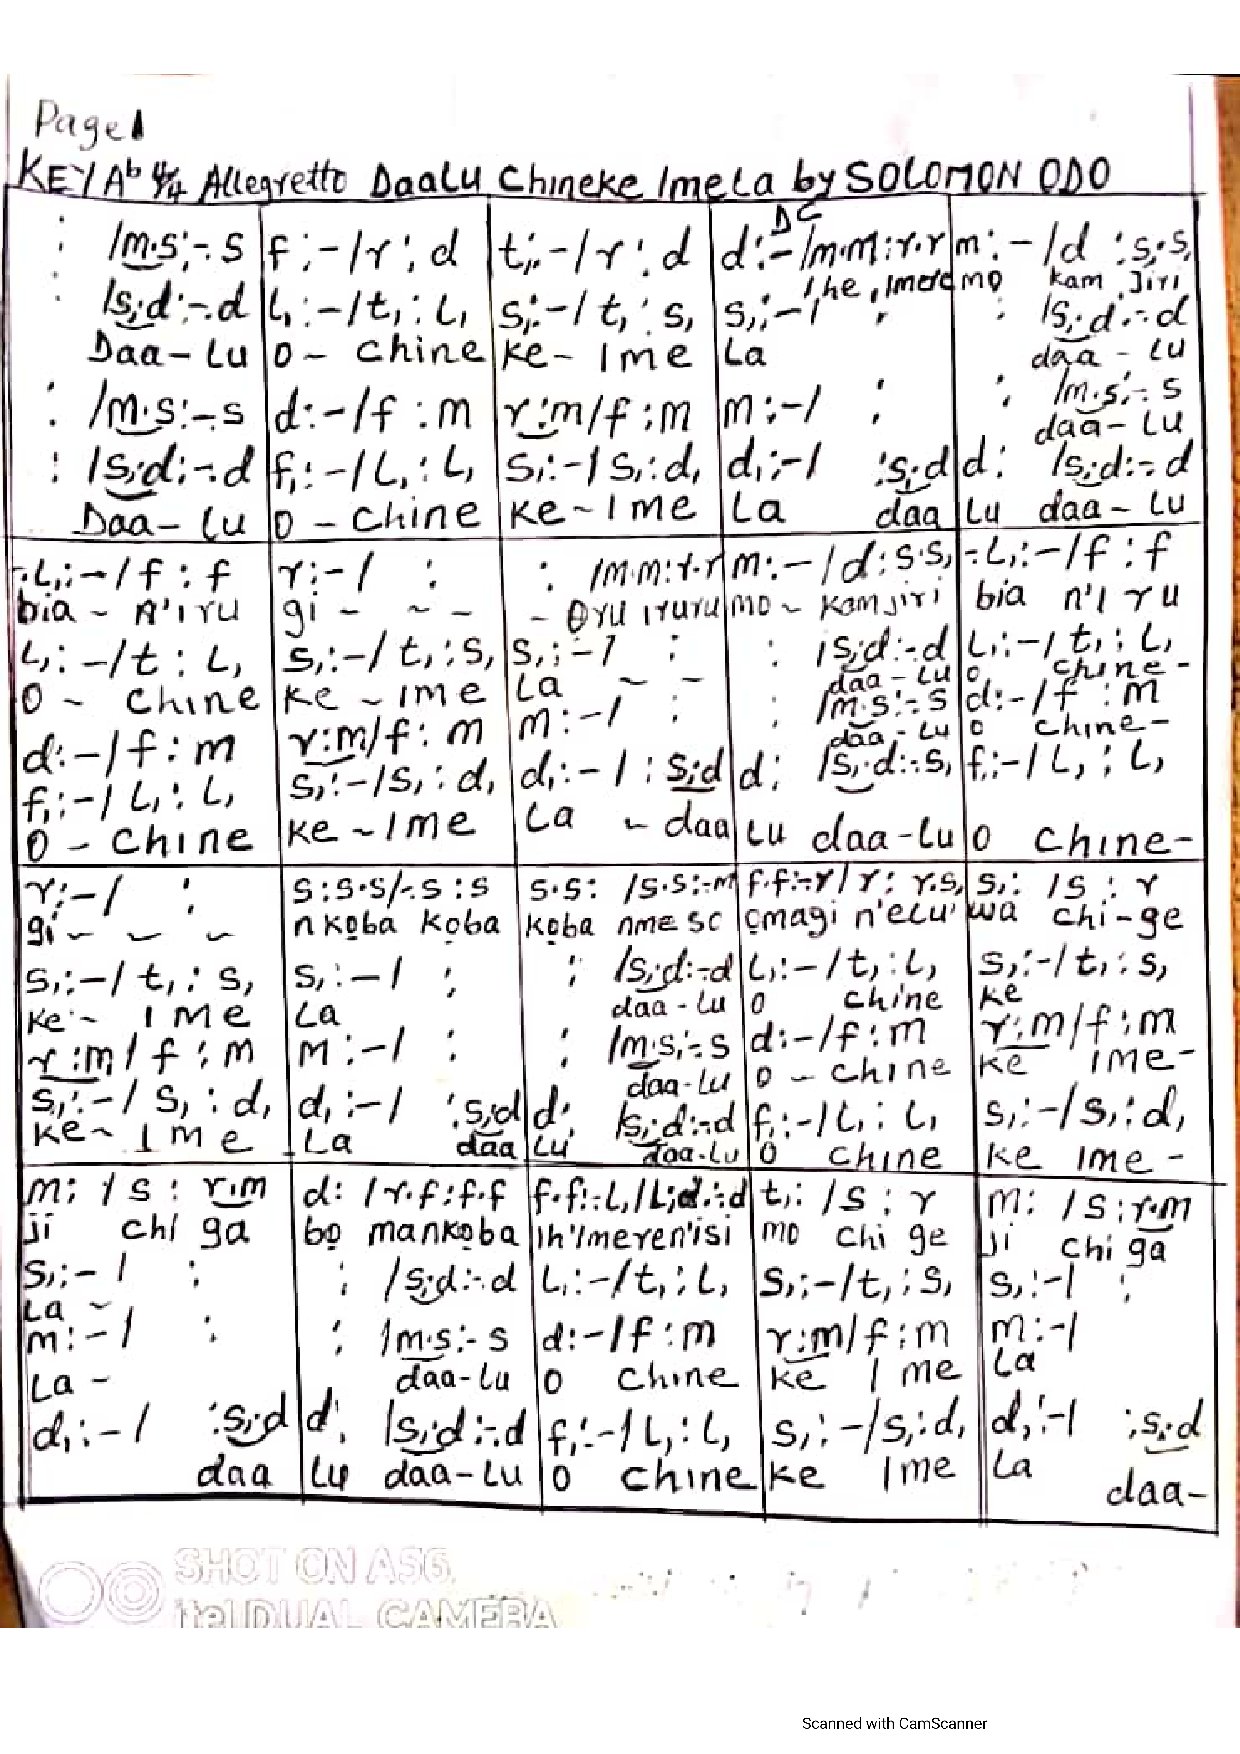 Page 1
KEY Ab 4/4 Allegretto Daalu Chineke Imela by SOLOMON ODO
DC
: /m.s:-.s | f:-/r:d | t,:-/r:d | d:-/m.m:r.r | m:-/d:s,.s,
Ihe, Imere mo kam Jiri
: /s,.d:-.d | l,:-/t,:l, | s,:-/t,:s, | s,:-/ : | : /s,.d:-.d
Daa-lu | O - chine | ke- Ime | la | daa-lu
: /m.s:-.s | d:-/f:m | r:m/f:m | m:-/ : | : /m.s:-.s
daa-lu
: /s,.d:-.d | f,:-/l,:l, | s,:-/s,:d, | d,:-/ :s,.d | d: /s,.d:-.d
Daa-lu | O - chine | ke-Ime | la daa | lu daa-lu
-.l,:-/f:f | r:-/ : | : /m.m:r.r | m:-/d:s.s, | -.l,:-/f:f
bia - n'iru | gi - - - | - Oru iruru | mo - kam jiri | bia n'iru
l,:-/t:l, | s,:-/t,:s, | s,:-/ : | : /s,.d:-.d | l,:-/t,:l,
O - chine | ke - ime | la - - | daa-lu | o chine-
d:-/f:m | r:m/f:m | m:-/ : | : /m.s:-.s | d:-/f:m
daa-lu | o chine-
f,:-/l,:l, | s,:-/s,:d, | d,:-/ :s,.d | d: /s,.d:-.s, | f,:-/l,:l,
O - chine | ke - Ime | la - daa | lu daa-lu | O chine-
r:-/ : | s:s.s/-.s:s | s.s: /s.s:-.m | f.f:-.r/r:r.s, | s,: /s:r
gi - - - | nkoba koba | koba nme so | omagi n'elu' | wa chi-ge
s,:-/t,:s, | s,:-/ : | : /s,.d:-.d | l,:-/t,:l, | s,:-/t,:s,
ke - Ime | la | daa-lu | O chine | ke
r:m/f:m | m:-/ : | : /m.s:-.s | d:-/f:m | r:m/f:m
daa-lu | O - chine | ke ime-
s,:-/s,:d, | d,:-/ :s,.d | d: /s,.d:-.d | f,:-/l,:l, | s,:-/s,:d,
ke- Ime | La daa | lu daa-lu | O chine | ke ime -
m: /s:r.m | d: /r.f:f.f | f.f:-.l,/l,.d:-.d | t,: /s:r | m: /s:r.m
ji chi ga | bo mankoba | ih'imeren'isi | mo chi ge | ji chi ga
s,:-/ : | : /s,.d:-.d | l,:-/t,:l, | s,:-/t,:s, | s,:-/ :
la -
m:-/ : | : /m.s:-.s | d:-/f:m | r:m/f:m | m:-/
La - | daa-lu | O chine | ke Ime | la
d,:-/ :s,.d | d: /s,.d:-.d | f,:-/l,:l, | s,:-/s,:d, | d,:-/ :s,.d
daa | lu daa-lu | O chine | ke Ime | la daa-
SHOT ON A56
itel DUAL CAMERA
Scanned with CamScanner